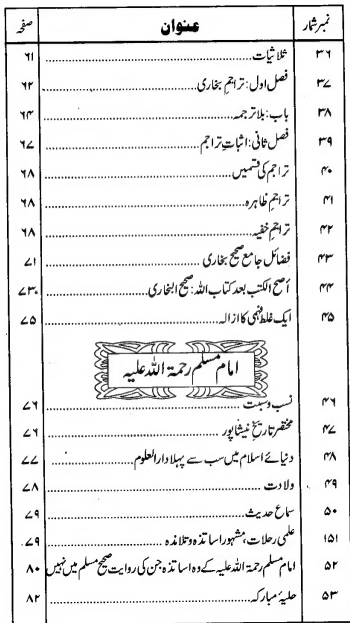 نمبر شمار عنوان صفحہ
۳۶ ثلاثیات ۶۱
۳۷ فصل اول: تراجم بخاری ۶۲
۳۸ باب: بلا ترجمہ ۶۴
۳۹ فصل ثانی: اثبات تراجم ۶۷
۴۰ تراجم کی قسمیں ۶۸
۴۱ تراجم ظاہرہ ۶۸
۴۲ تراجم خفیہ ۶۸
۴۳ فضائل جامع صحیح بخاری ۷۱
۴۴ أصح الکتب بعد کتاب اللہ: صحیح البخاری ۷۳
۴۵ ایک غلط فہمی کا ازالہ ۷۵
امام مسلم رحمۃ اللہ علیہ
۴۶ نسب ونسبت ۷۶
۴۷ مختصر تاریخ نیشاپور ۷۶
۴۸ دنیائے اسلام میں سب سے پہلا دارالعلوم ۷۷
۴۹ ولادت ۷۸
۵۰ سماع حدیث ۷۹
۱۵۱ علمی رحلات، مشہور اساتذہ وتلامذہ ۷۹
۵۲ امام مسلم رحمۃ اللہ علیہ کے وہ اساتذہ جن کی روایت صحیح مسلم میں نہیں ۸۰
۵۳ حلیۂ مبارکہ ۸۲